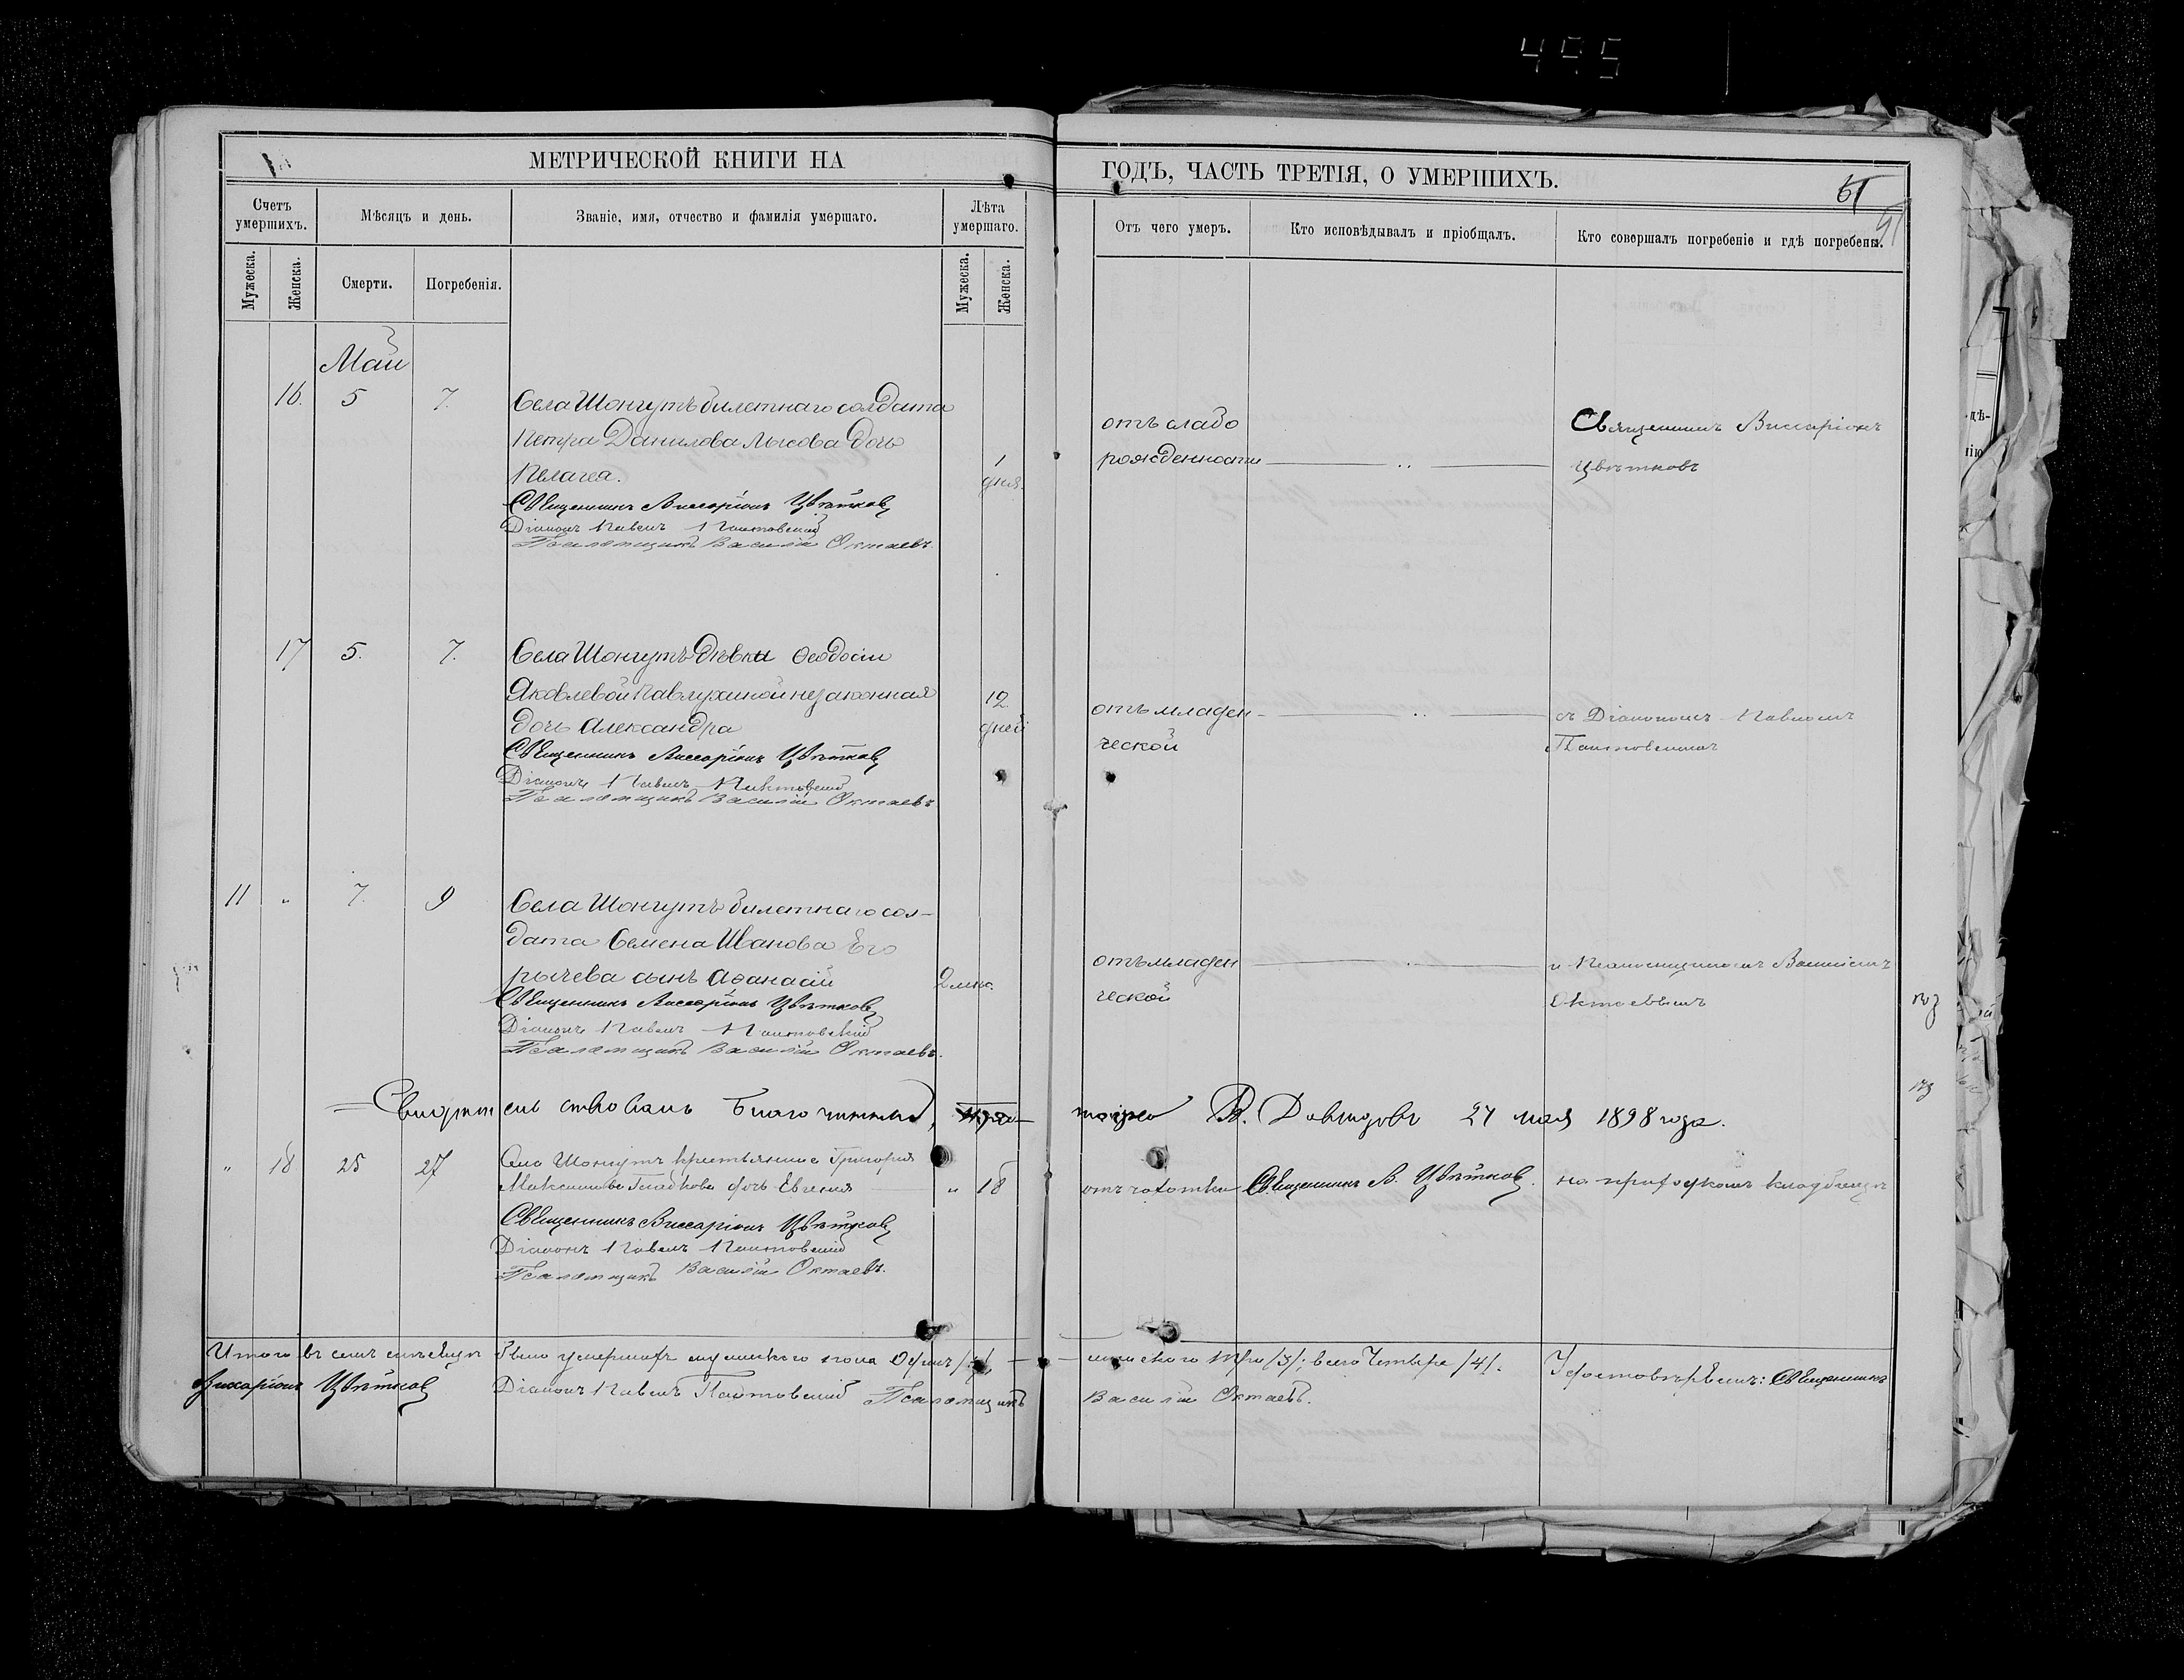 495
МЕТРИЧЕСКОЙ КНИГИ НА
ГОДЪ, ЧАСТЬ ТРЕТІЯ, О УМЕРШИХЪ.
Счетъ умершихъ.
Мѣсяцъ и день.
Званіе, имя, отчество и фамилія умершаго.
Лѣта умершаго.
Отъ чего умеръ.
Кто исповѣдывалъ и пріобщалъ.
Кто совершалъ погребеніе и гдѣ погребены.
Мужеска.
Женска.
Смерти.
Погребенія.
Мужеска.
Женска.
Май
16. 5 7. Села Шонгутъ билетнаго солдата
Петра Данилова Лысова дочь
Пелагея. 1 дня.
отъ слабо
рожденности
Священникъ Виссаріонъ
Цвѣтковъ
Священникъ Виссаріонъ Цвѣтковъ
Діаконъ Павелъ
Псаломщикъ Василій Октаевъ.
17 5. 7. Села Шонгутъ дѣвки Ѳеодосіи
Яковлевой Павлухиной незаконная
дочь Александра 12 дней
отъ младен
ческой
съ Діакономъ Павломъ
Священникъ Виссаріонъ Цвѣтковъ
Діаконъ Павелъ
Псаломщикъ Василій Октаевъ
11 " 7. 9 Села Шонгутъ билетнаго сол-
дата Семена Иванова Его
рычева сынъ Аѳанасій 2 мѣс.
отъ младен
ческой
и Псаломщикомъ Василіемъ
Октаевымъ
Священникъ Виссаріонъ Цвѣтковъ
Діаконъ Павелъ
Псаломщикъ Василій Октаевъ.
Свидѣтельствовалъ Благочинный,
В. Давыдовъ 27 мая 1898 года.
" 18 25 27 Села Шонгутъ крестьянина Григорія
Максимова Гладкова дочь Евгенія " 18
отъ чахотки Священникъ В. Цвѣтковъ. на приходскомъ кладбищѣ
Священникъ Виссаріонъ Цвѣтковъ
Діаконъ Павелъ
Псаломщикъ Василій Октаевъ.
Итого въ семъ мѣсяцѣ было умершихъ мужескаго пола Одинъ /1/ — женскаго три /3/; всего Четыре /4/. Удостовѣряемъ: Священникъ
Виссаріонъ Цвѣтковъ Діаконъ Павелъ Псаломщикъ Василій Октаевъ.